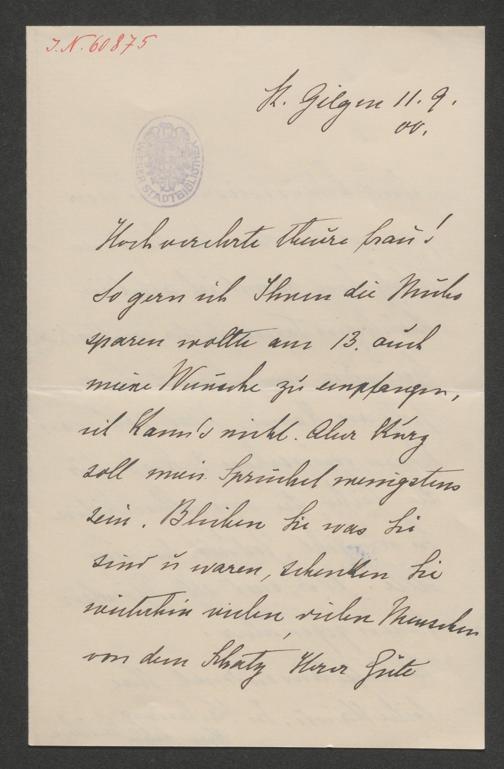 J.N. 60875
St. Gilgen 11. 9.
00.
WIENER STADTBIBLIOTHEK
Hochverehrte theure Frau!
So gern ich Ihnen die Mühe
sparen wollte am 13. auch
meine Wünsche zu empfangen,
ich kann's nicht. Aber kurz
soll mein Sprüchel wenigstens
sein. Bleiben Sie was Sie
sind u waren, schenken Sie
weiterhin vielen, vielen Menschen
von dem Schatz Ihrer Güte